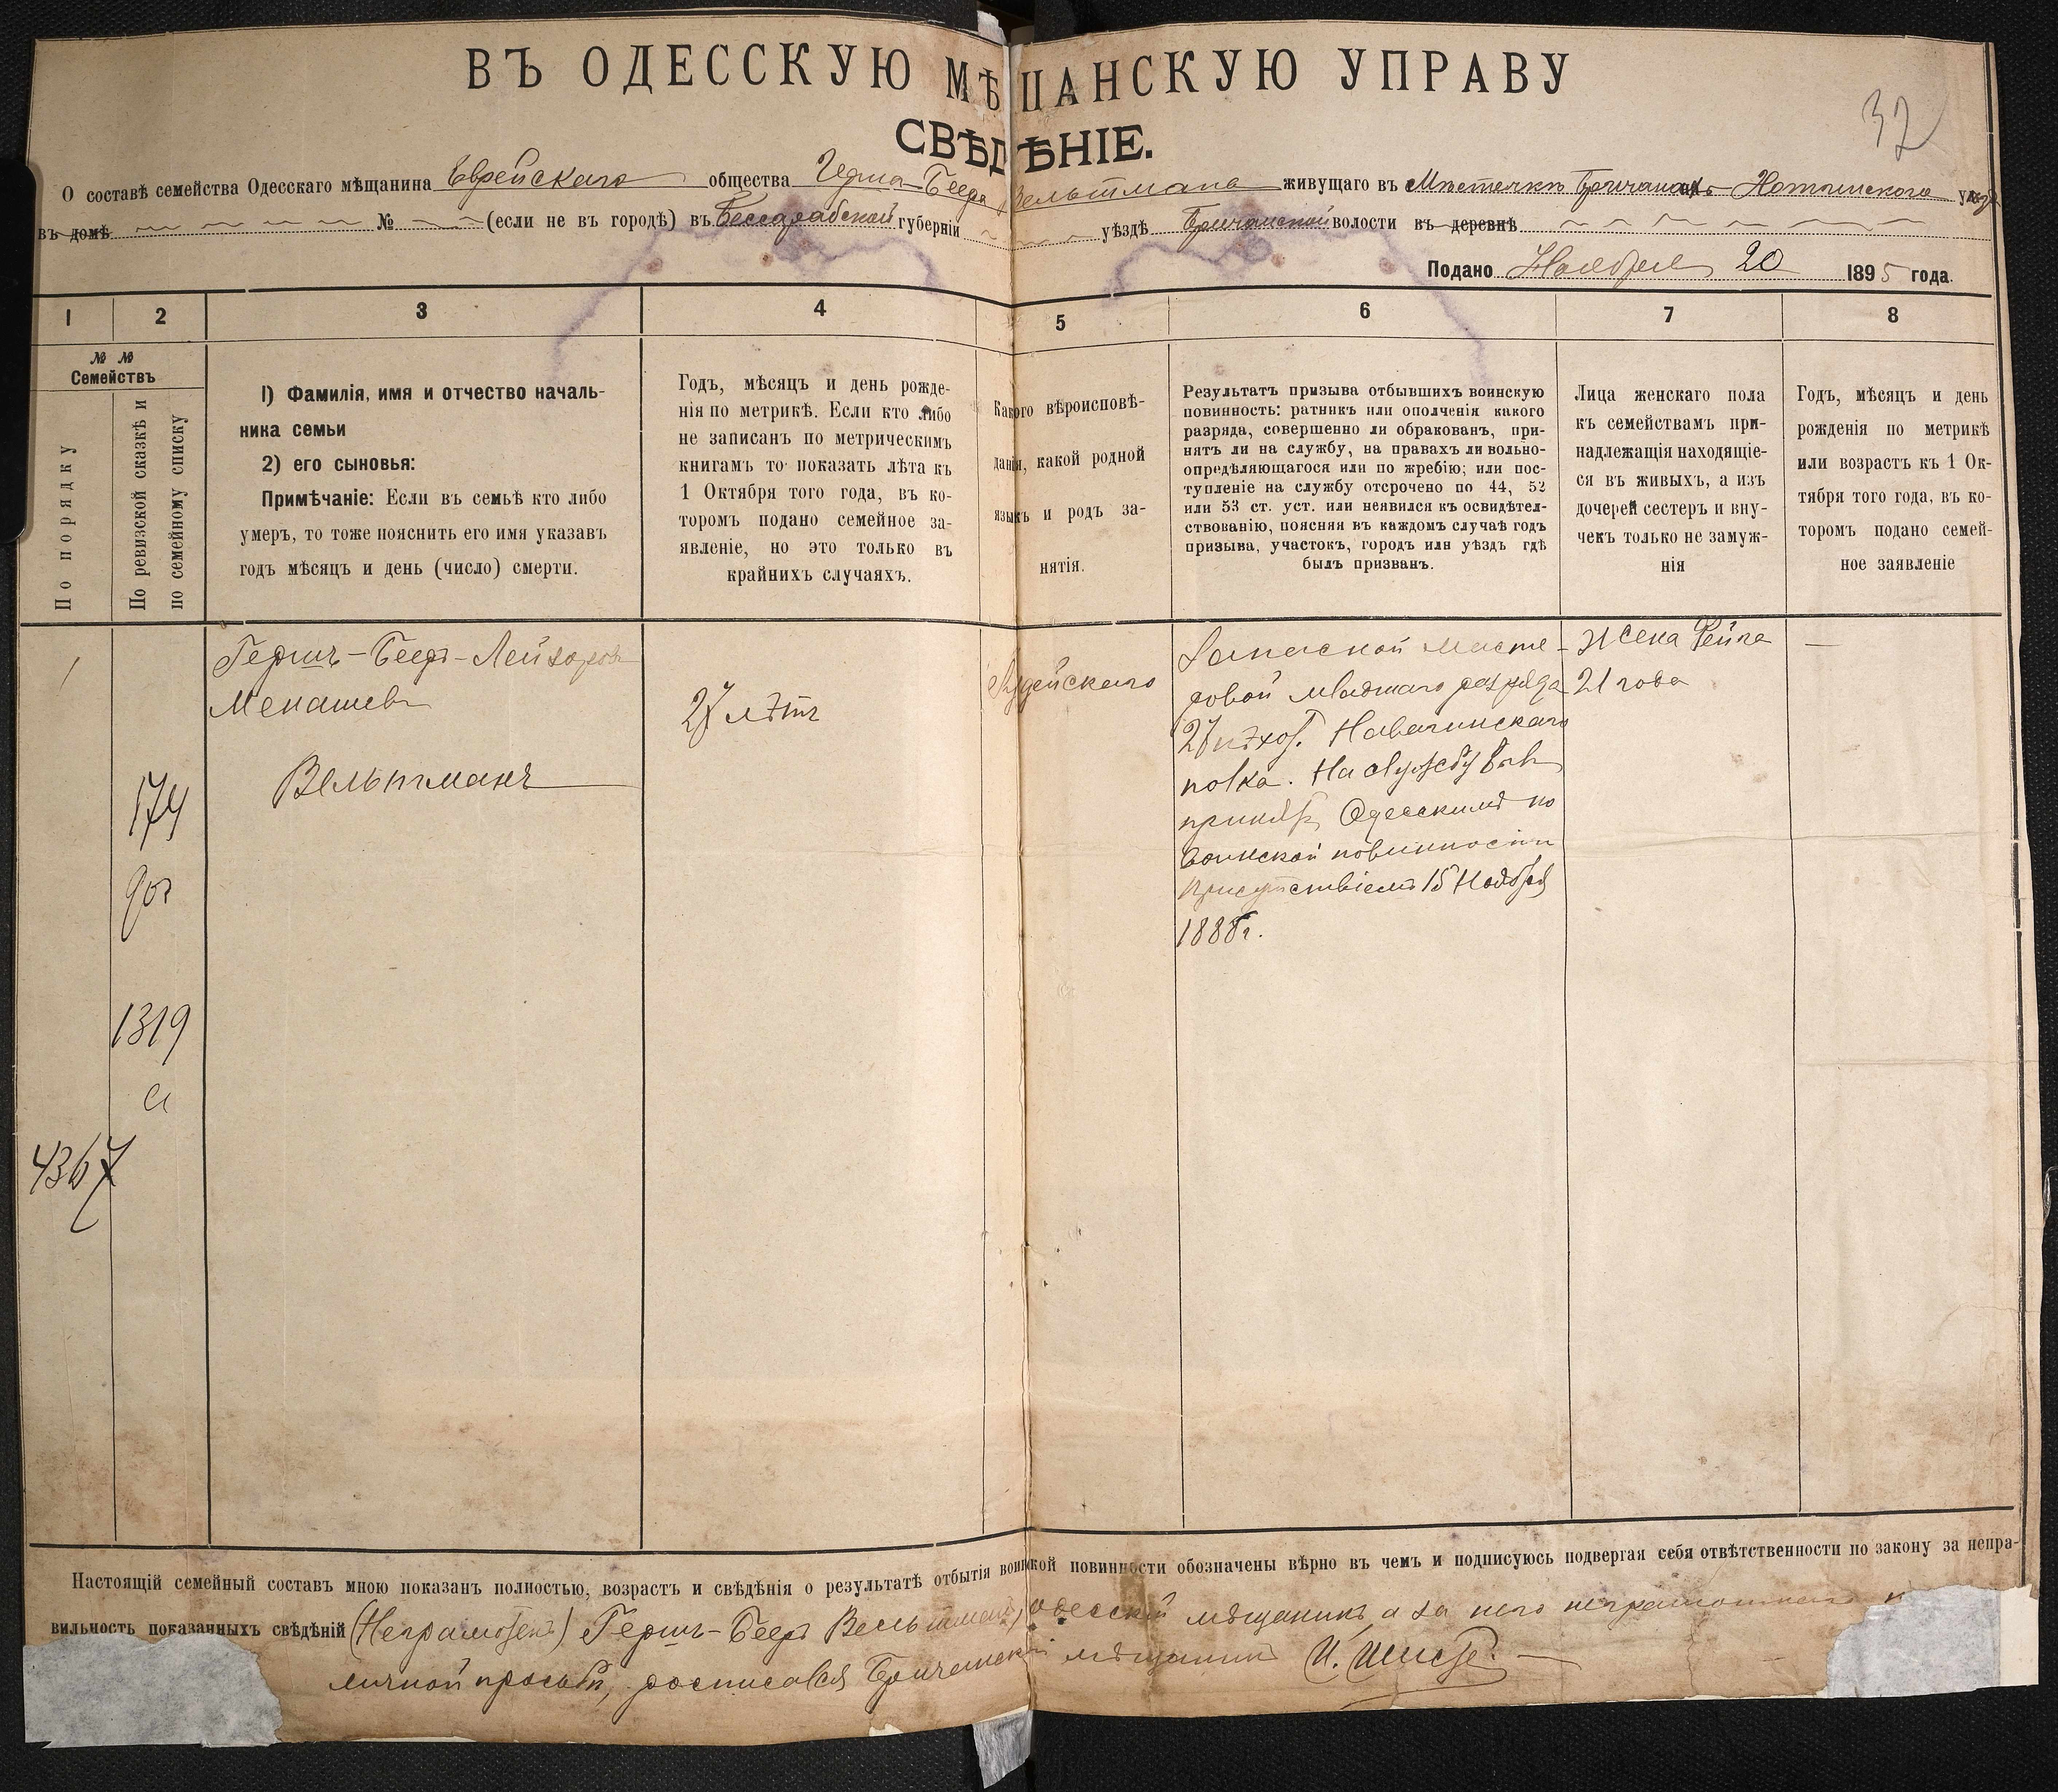 ВЪ ОДЕССКУЮ МѢЩАНСКУЮ УПРАВУ
32
СВѢДѢНІЕ.
О составѣ семейства Одесскаго мѣщанина Еврейскаго общества Герша-Беера Вельтмана живущаго въ Мѣстечкѣ Бричанахъ Хотинскаго уѣзда
въ домѣ № (если не въ городѣ) въ Бессарабской губерніи уѣздѣ Бричанской волости въ деревнѣ
Подано Ноября 20 1895 года.
1 2 3 4 5 6 7 8
№ №
Семействъ
По порядку
По ревизской сказкѣ и
по семейному списку
1) Фамилія, имя и отчество началь-
ника семьи
2) его сыновья:
Примѣчаніе: Если въ семьѣ кто либо
умеръ, то тоже пояснить его имя указавъ
годъ мѣсяцъ и день (число) смерти.
Годъ, мѣсяцъ и день рожде-
нія по метрикѣ. Если кто либо
не записанъ по метрическимъ
книгамъ то показать лѣта къ
1 Октября того года, въ ко-
торомъ подано семейное за-
явленіе, но это только въ
крайнихъ случаяхъ.
Какого вѣроисповѣ-
данія, какой родной
языкъ и родъ за-
нятія.
Результатъ призыва отбывшихъ воинскую
повинность: ратникъ или ополченія какого
разряда, совершенно ли обракованъ, при-
нятъ ли на службу, на правахъ ли вольно-
опредѣляющагося или по жребію; или пос-
тупленіе на службу отсрочено по 44, 52
или 53 ст. уст. или неявился къ освидѣтел-
ствованію, поясняя въ каждомъ случаѣ годъ
призыва, участокъ, городъ или уѣздъ гдѣ
былъ призванъ.
Лица женскаго пола
къ семействамъ при-
надлежащія находящіе-
ся въ живыхъ, а изъ
дочерей сестеръ и вну-
чекъ только не замуж-
нія
Годъ, мѣсяцъ и день
рожденія по метрикѣ
или возрастъ къ 1 Ок-
тября того года, въ ко-
торомъ подано семей-
ное заявленіе
1
Гершъ-Бееръ-Лейзоровъ
Менашевъ
Вельтманъ
174
1319
а
4367
27 лѣтъ
Іудейскаго
Запасной масте-
ровой младшаго разряда
27 пѣхот.
полка. На службу былъ
принятъ Одесскимъ по
воинской повинности
Присутствіемъ 15 Ноября
1888г.
Жена Рейза
21 года
—
Настоящій семейный составъ мною показанъ полностью, возрастъ и свѣдѣнія о результатѣ отбытія воинской повинности обозначены вѣрно въ чемъ и подписуюсь подвергая себя отвѣтственности по закону за непра-
вильность показанныхъ свѣдѣній (Неграмотенъ) Гершъ-Бееръ Вельтманъ, одесскій мѣщанинъ, а за него неграмотнаго
личной просьбѣ, росписался Бричанскій мѣщанинъ